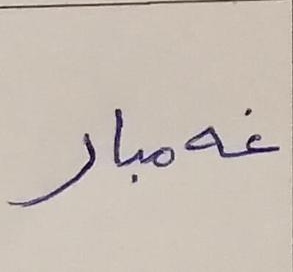 غەمبار